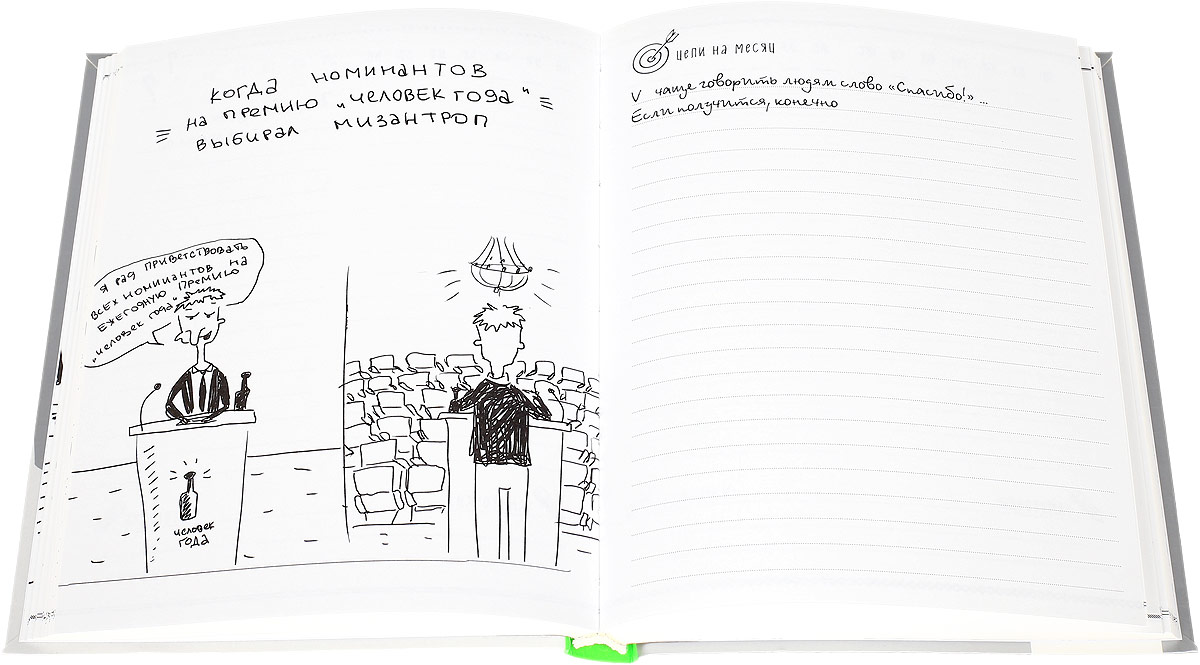 когда номинантов
на премию „человек года“
выбирал мизантроп
я рад приветствовать
всех номинантов на
ежегодную премию
„человек года“
человек
года
цели на месяц
v чаще говорить людям слово «Спасибо!» ...
Если получится, конечно